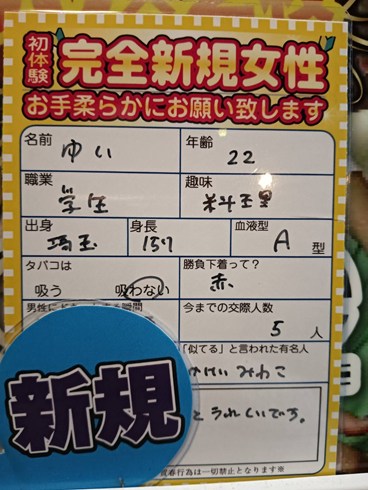 初体験
完全新規女性
お手柔らかにお願い致します
名前 ゆい
年齢 22
職業 学生
趣味 料理
出身 埼玉
身長 157
血液型 A 型
タバコは 吸う 吸わない
勝負下着って? 赤
今までの交際人数 5 人
「似てる」と言われた有名人
新規
とうれしいです。
春行為は一切禁止となります※